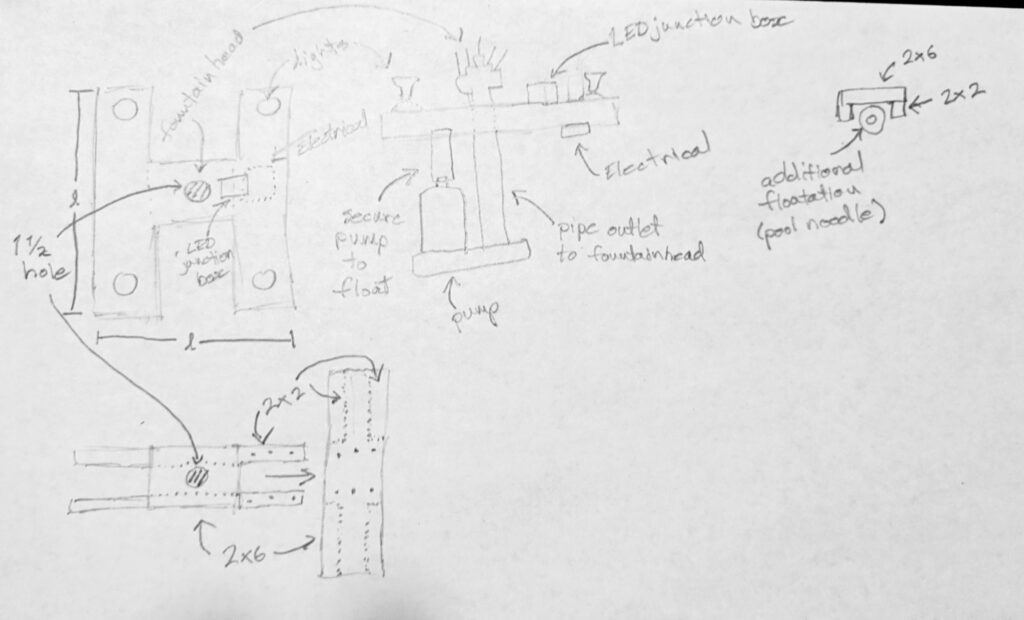 fountain head
Lights
LED junction box
2x6
2x2
Electrical
Electrical
additional
floatation
(pool noodle)
l
1 1/2
hole
LED
junction
box
secure
pump
to
float
pipe outlet
to fountainhead
pump
l
2x2
2x6